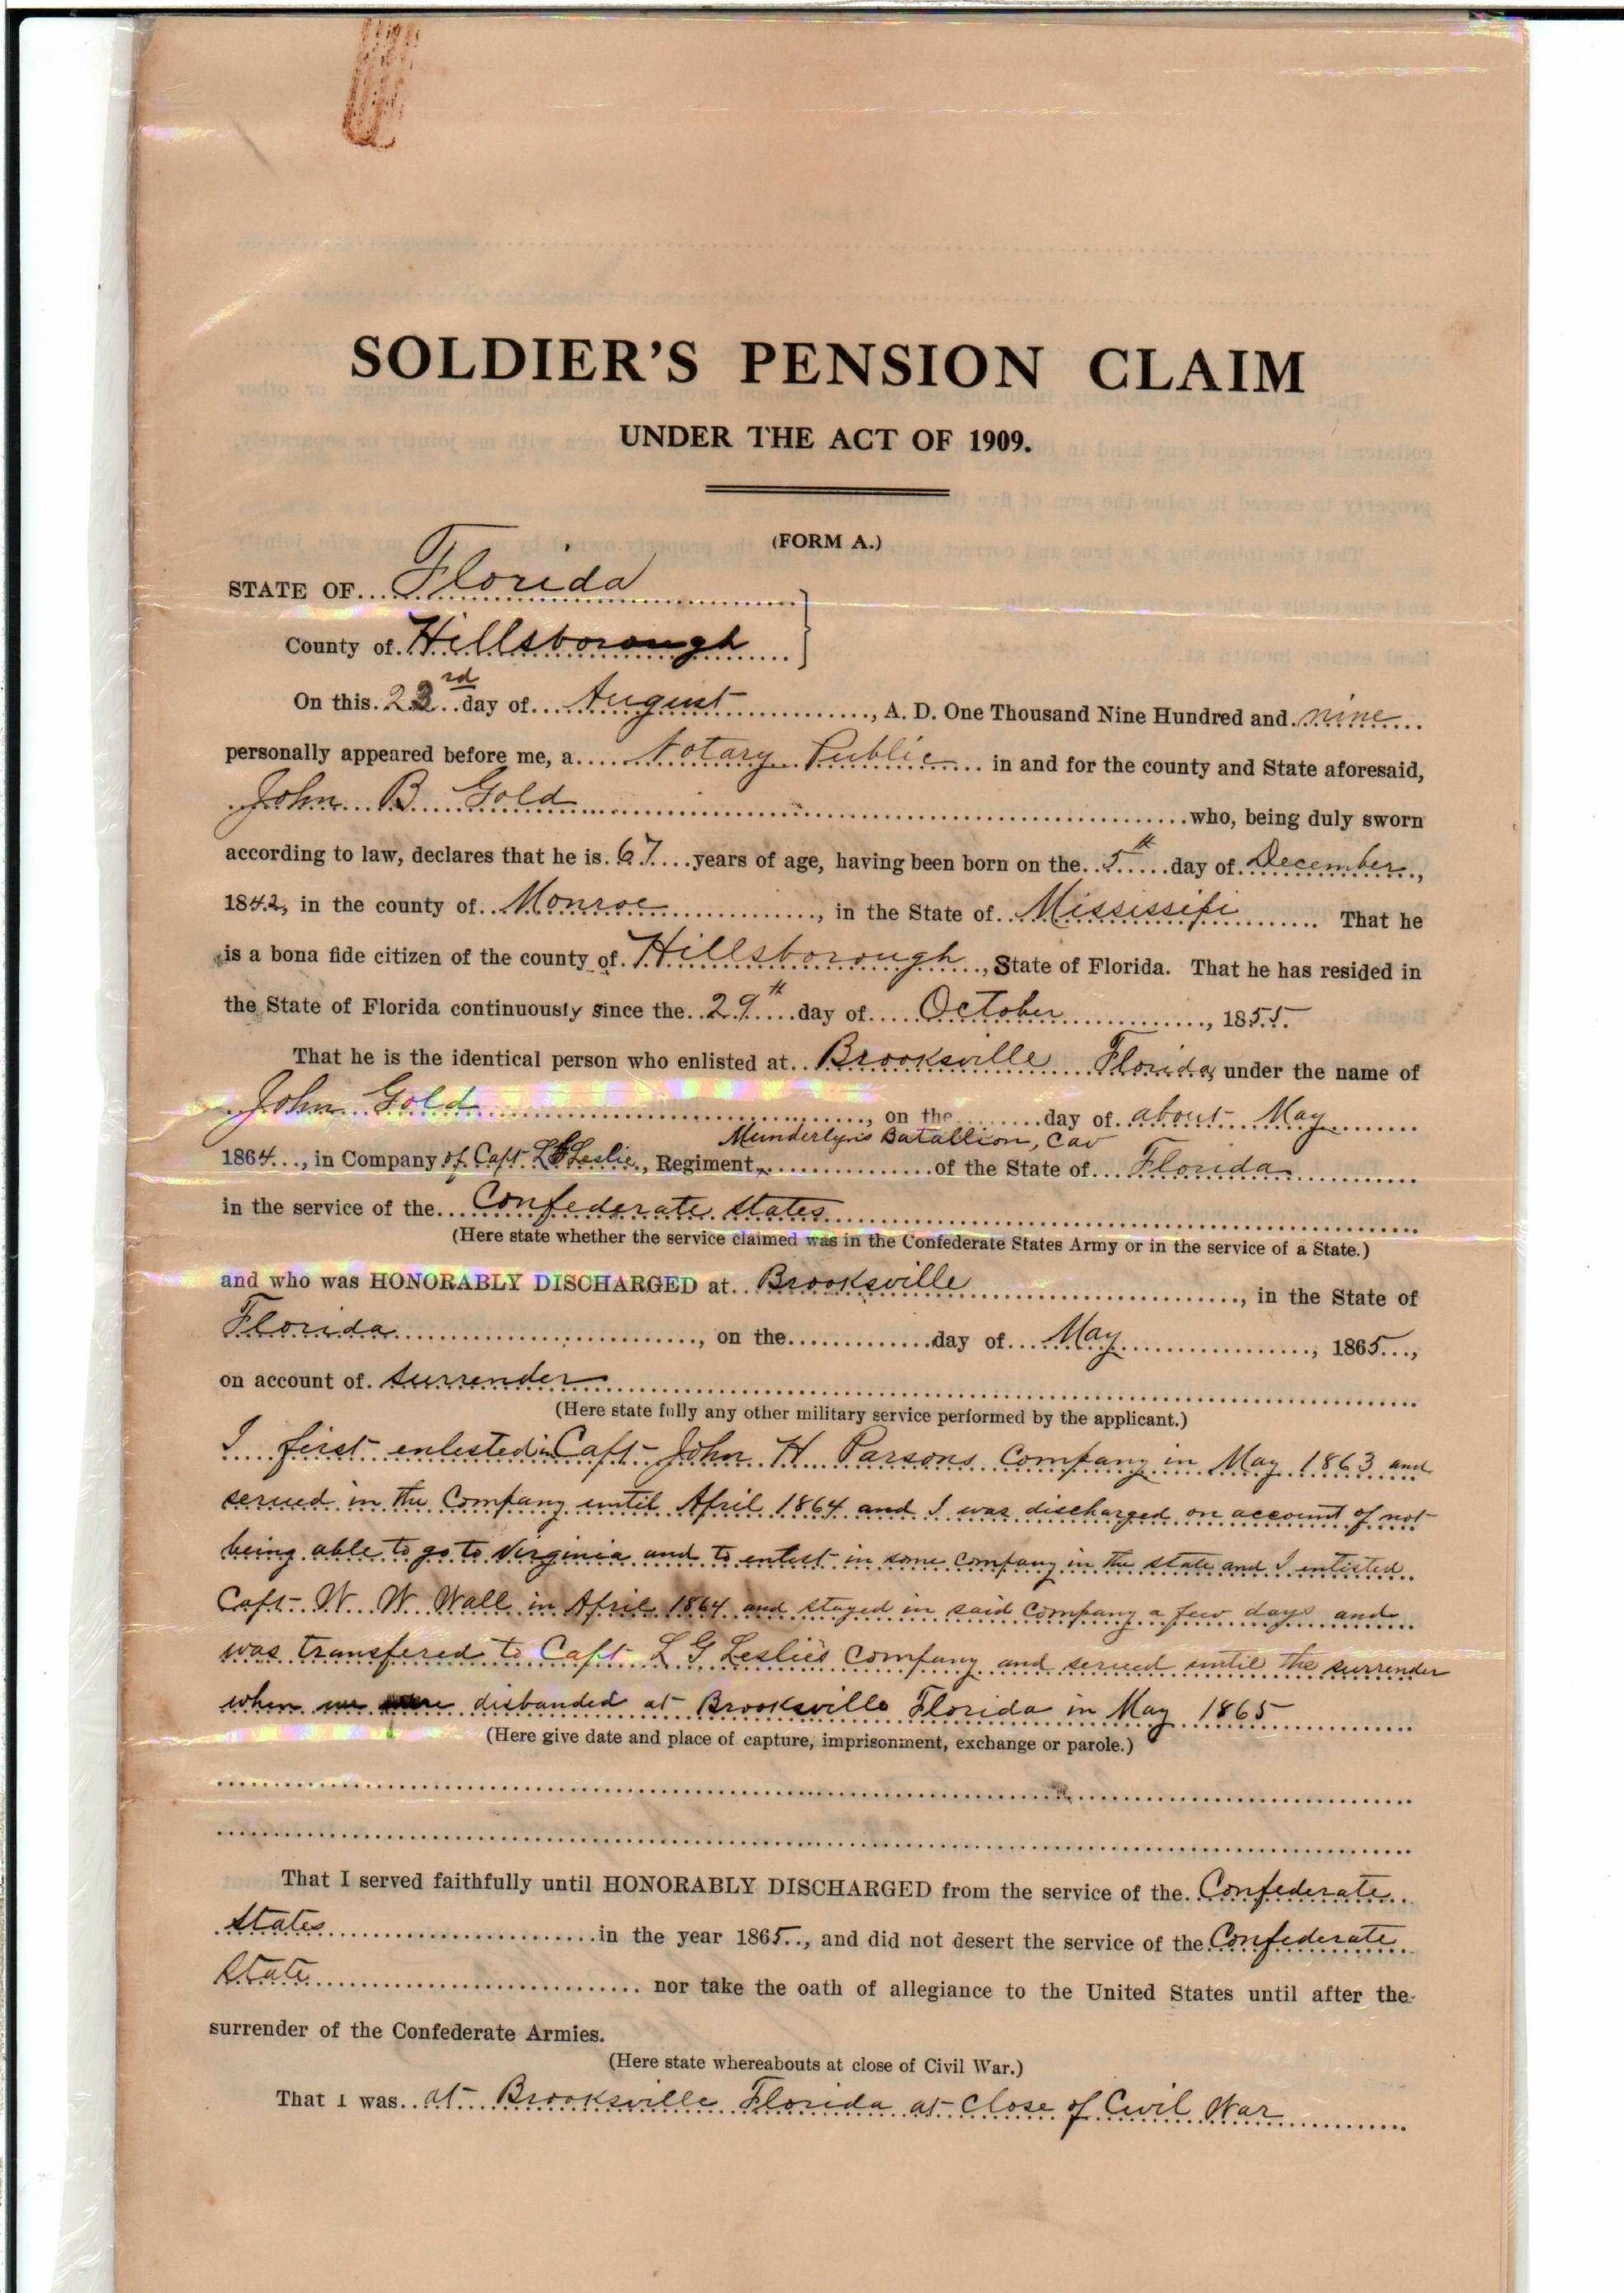 SOLDIER'S PENSION CLAIM
UNDER THE ACT OF 1909.
(FORM A.)
STATE OF Florida
County of Hillsborough
On this 23rd day of August, A. D. One Thousand Nine Hundred and nine
personally appeared before me, a Notary Public in and for the county and State aforesaid,
John B Gold who, being duly sworn
according to law, declares that he is 67 years of age, having been born on the 5th day of December,
1842, in the county of Monroe, in the State of Mississipi That he
is a bona fide citizen of the county of Hillsborough, State of Florida. That he has resided in
the State of Florida continuously since the 29th day of October, 1855.
That he is the identical person who enlisted at Brooksville Florida, under the name of
John Gold, on the day of about May
Munderlyn's Batallion, Cav
1864, in Company of Capt L G Leslie, Regiment, of the State of Florida
in the service of the Confederate states
(Here state whether the service claimed was in the Confederate States Army or in the service of a State.)
and who was HONORABLY DISCHARGED at Brooksville, in the State of
Florida, on the day of May, 1865,
on account of surrender
(Here state fully any other military service performed by the applicant.)
I first enlested in Capt John H Parsons Company in May 1863 and
served in the Company until April 1864 and I was discharged on account of not
being able to go to Verginia and to enlist in some company in the state and I enlisted
Capt W. W. Wall in April 1864 and stayed in said Company a few days and
was transfered to Capt L G Leslie's Company and served until the surrender
when we were disbanded at Brooksville Florida in May 1865
(Here give date and place of capture, imprisonment, exchange or parole.)
That I served faithfully until HONORABLY DISCHARGED from the service of the Confederate
states in the year 1865, and did not desert the service of the Confederate
State nor take the oath of allegiance to the United States until after the
surrender of the Confederate Armies.
(Here state whereabouts at close of Civil War.)
That I was at Brooksville Florida at close of Civil War